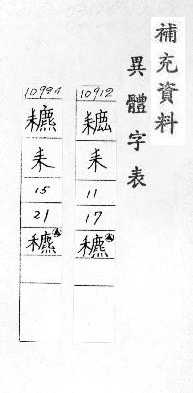 補充資料
異體字表
10912
耒
11
17
穮
䎩
耒
15
21
穮